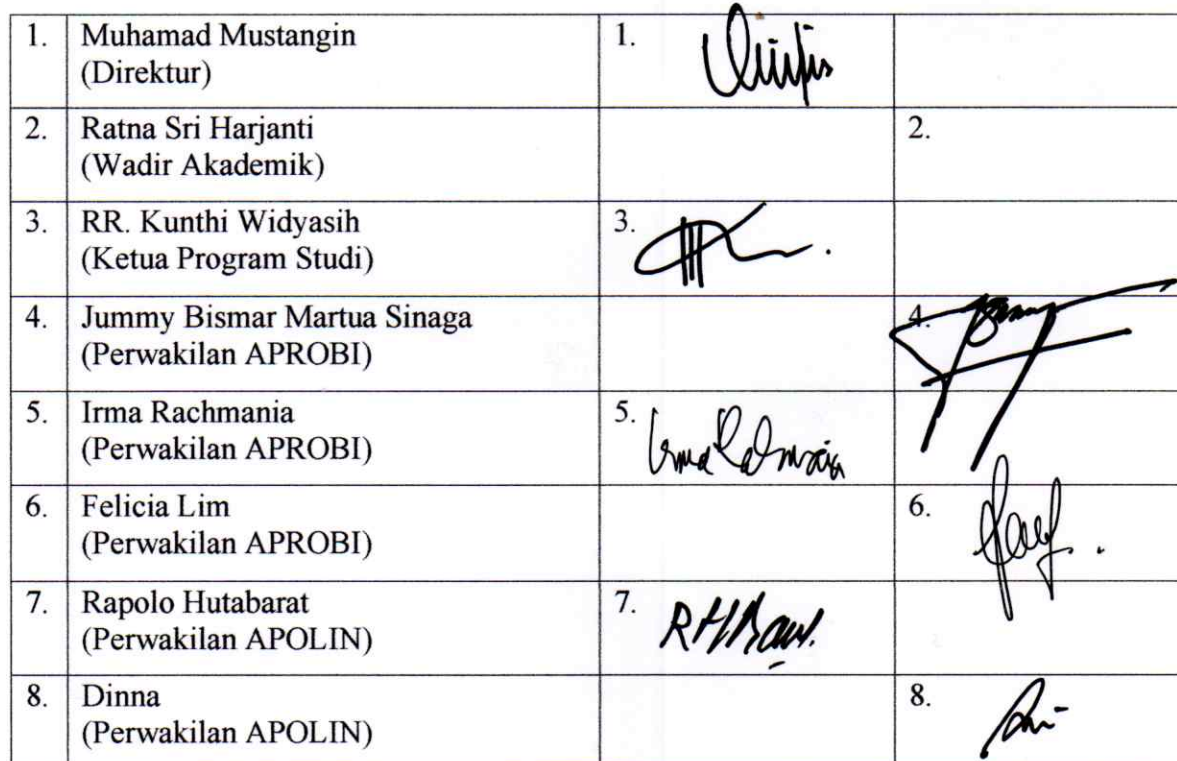 1. Muhamad Mustangin 1.
(Direktur)
2. Ratna Sri Harjanti 2.
(Wadir Akademik)
3. RR. Kunthi Widyasih 3.
(Ketua Program Studi)
4. Jummy Bismar Martua Sinaga 4.
(Perwakilan APROBI)
5. Irma Rachmania 5.
(Perwakilan APROBI)
6. Felicia Lim 6.
(Perwakilan APROBI)
7. Rapolo Hutabarat 7.
(Perwakilan APOLIN)
8. Dinna 8.
(Perwakilan APOLIN)